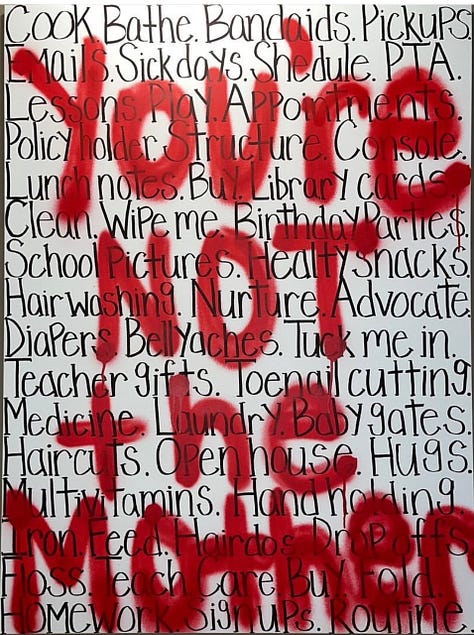 Cook Bathe. Bandaids. Pickups
Emails. Sickdays. Shedule. PTA.
Lessons. Play. Appointments.
Policyholder. Structure. Console.
Lunch notes. Buy. Library cards
Clean. Wipe me. Birthday Parties.
School Pictures. Healty snacks
Hair washing. Nurture. Advocate.
Diapers. Bellyaches. Tuck me in.
Teacher gifts. Toenail cutting
Medicine. Laundry. Baby gates.
Haircuts. Open house. Hugs.
Multivitamins. Hand holding
Iron. Feed. Hairdos. Drop offs
Floss. Teach. Care. Buy. Fold.
Homework. Sign ups. Routine
You're
NOT
the
Mother